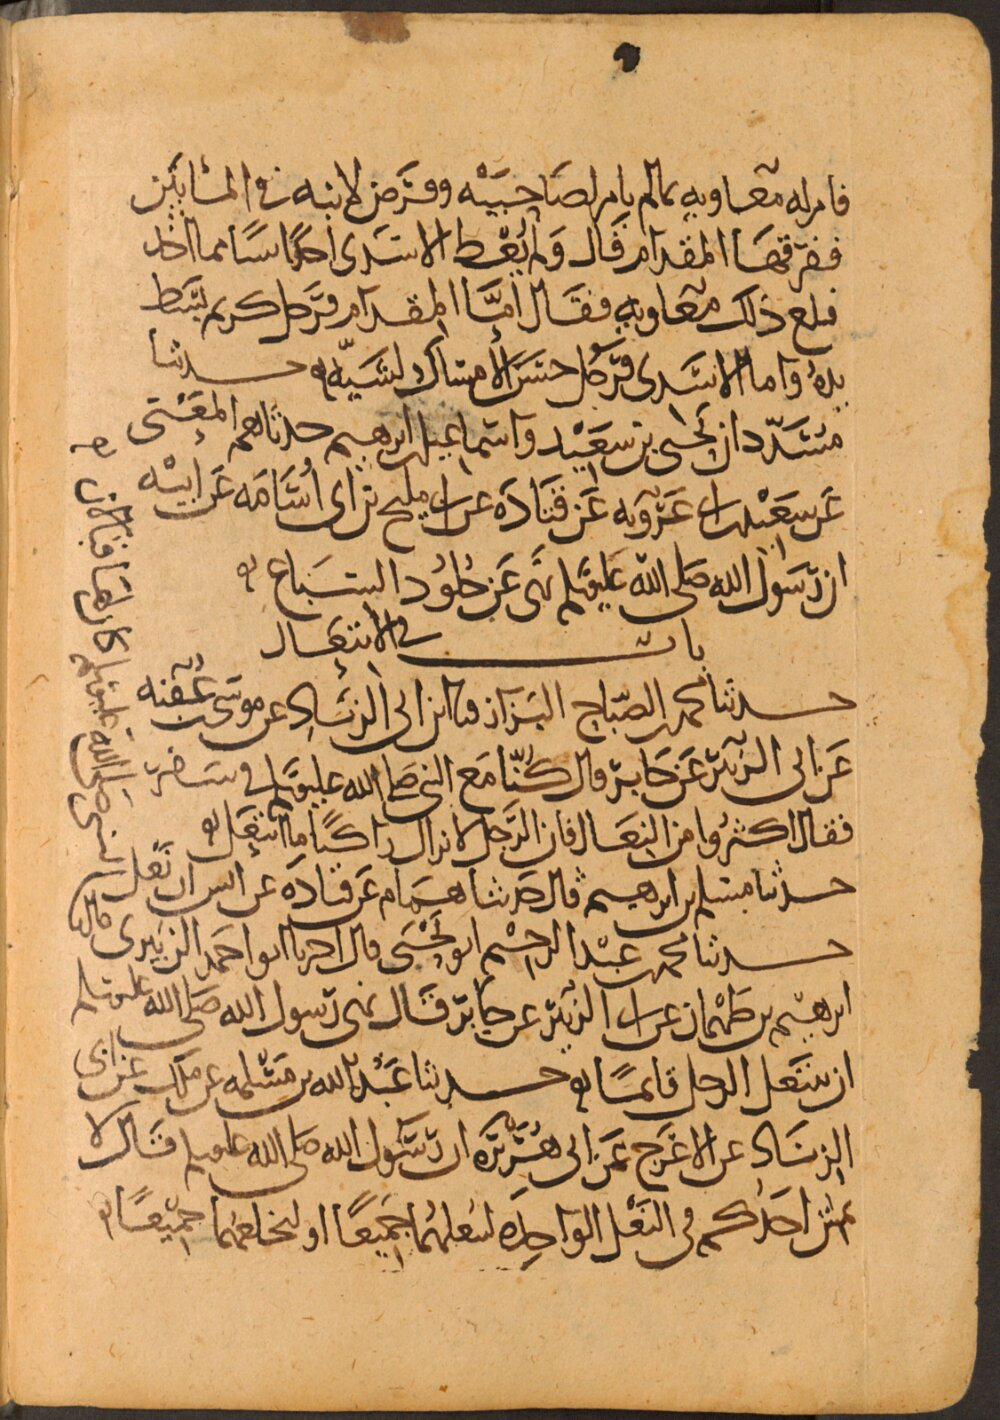 فامر له معاويه بمالم يامر لصاحبيه وفرض لابنه في المائتين
ففرقها المقدام قال ولم يعط الاسدي احدا شيا مما اخذ
فبلغ ذلك معاويه فقال اما المقدام فرجل كريم بسط
يده واما الاسدي فرجل حسن الامساك لشيه حدثنا
مسدد ان يحيى بن سعيد واسماعيل بن ابرهيم حدثاهم المعنى
عن سعيد بن ابي عروبه عن قتاده عن ابي مليح بن ابي اسامه عن ابيه
ان رسول الله صلى الله عليه وسلم نهى عن جلود السباع
باب في الانتعال
حدثنا محمد بن الصباح البزاز ثنا ابن ابي الزناد عن موسى بن عقبه
عن ابي الزبير عن جابر قال كنا مع النبي صلى الله عليه وسلم في سفر
فقال اكثروا من النعال فان الرجل لا يزال راكبا ما انتعل
حدثنا مسلم بن ابرهيم قال حدثنا همام عن قتاده عن انس ان نعل
النبي صلى الله عليه وسلم كان لها قبالان
حدثنا محمد بن عبد الرحيم ابو يحيى قال اخبرنا ابو احمد الزبيري قال ثنا
ابرهيم بن طهمان عن ابي الزبير عن جابر قال نهى رسول الله صلى الله عليه وسلم
ان ينتعل الرجل قائما حدثنا عبد الله بن مسلمه عن ملك عن ابي
الزناد عن الاعرج عن ابي هريره ان رسول الله صلى الله عليه وسلم قال لا
يمش احدكم في النعل الواحده لينعلهما جميعا او ليخلعهما جميعا